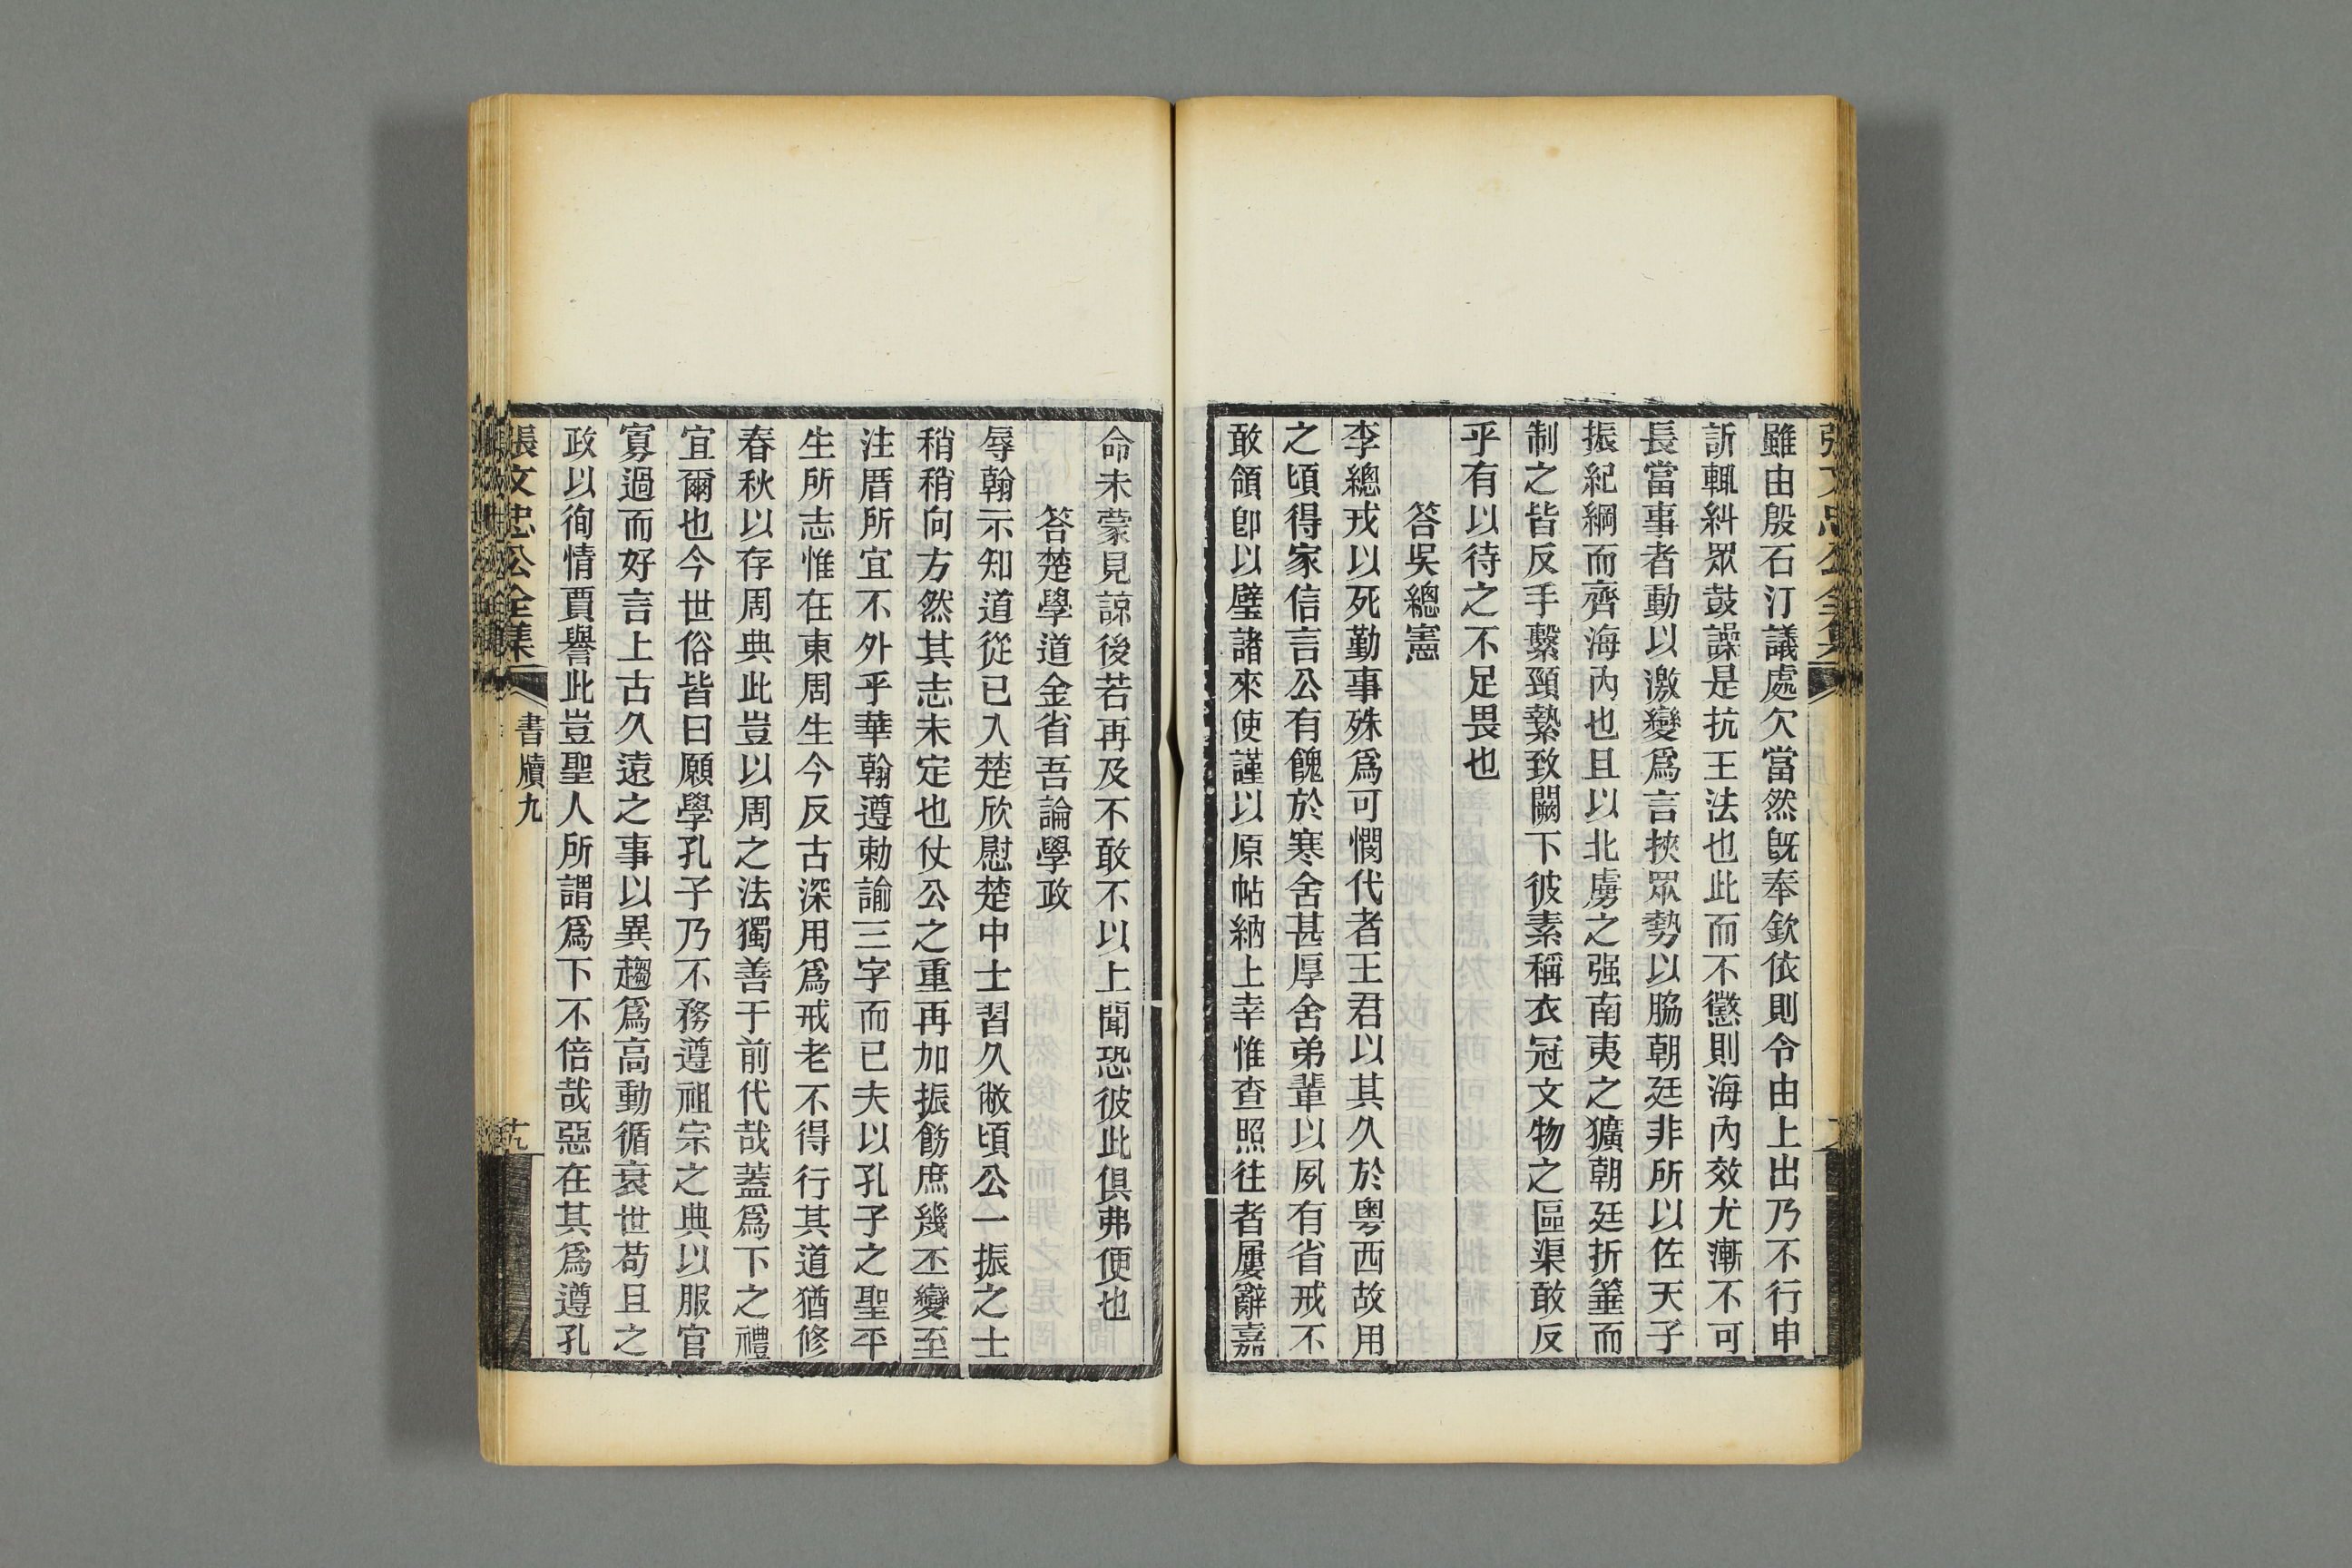 雖由殷石汀議處欠當然旣奉欽依則令由上出乃不行申
訴輒糾眾鼓譟是抗王法也此而不懲則海內效尤漸不可
長當事者動以激變爲言挾眾勢以脇朝廷非所以佐天子
振紀綱而齊海內也且以北虜之强南夷之獷朝廷折箠而
制之皆反手繫頸縶致闕下彼素稱衣冠文物之區渠敢反
乎有以待之不足畏也
答吳總憲
李總戎以死勤事殊爲可憫代者王君以其久於粵西故用
之頃得家信言公有餽於寒舍甚厚舍弟輩以夙有省戒不
敢領卽以璧諸來使謹以原帖納上幸惟查照往者屢辭嘉
命未蒙見諒後若再及不敢不以上聞恐彼此俱弗便也
答楚學道金省吾論學政
辱翰示知道從已入楚欣慰楚中士習久敝頃公一振之士
稍稍向方然其志未定也仗公之重再加振飭庶幾丕變至
注厝所宜不外乎華翰遵勅諭三字而已夫以孔子之聖平
生所志惟在東周生今反古深用爲戒老不得行其道猶修
春秋以存周典此豈以周之法獨善于前代哉蓋爲下之禮
宜爾也今世俗皆曰願學孔子乃不務遵祖宗之典以服官
寡過而好言上古久遠之事以異趨爲高動循衰世苟且之
政以徇情賈譽此豈聖人所謂爲下不倍哉惡在其爲遵孔
張文忠公全集
書牘九
十九